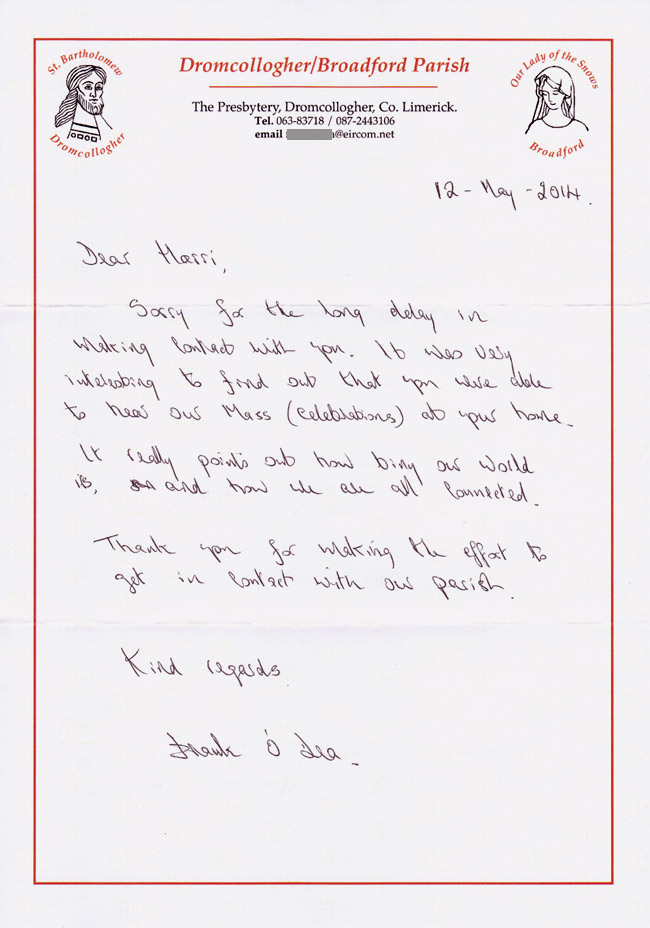 St. Bartholomew
Dromcollogher
Dromcollogher/Broadford Parish
The Presbytery, Dromcollogher, Co. Limerick.
Tel. 063-83718 / 087-2443106
email @eircom.net
Our Lady of the Snows
Broadford
12 - May - 2014.
Dear Harri,
Sorry for the long delay in
making contact with you. It was very
interesting to find out that you were able
to hear our Mass (Celebrations) at your home.
It really points out how biny our world
is, and how we are all connected.
Thank you for making the effort to
get in contact with our parish.
Kind regards
Frank Ó Dea.